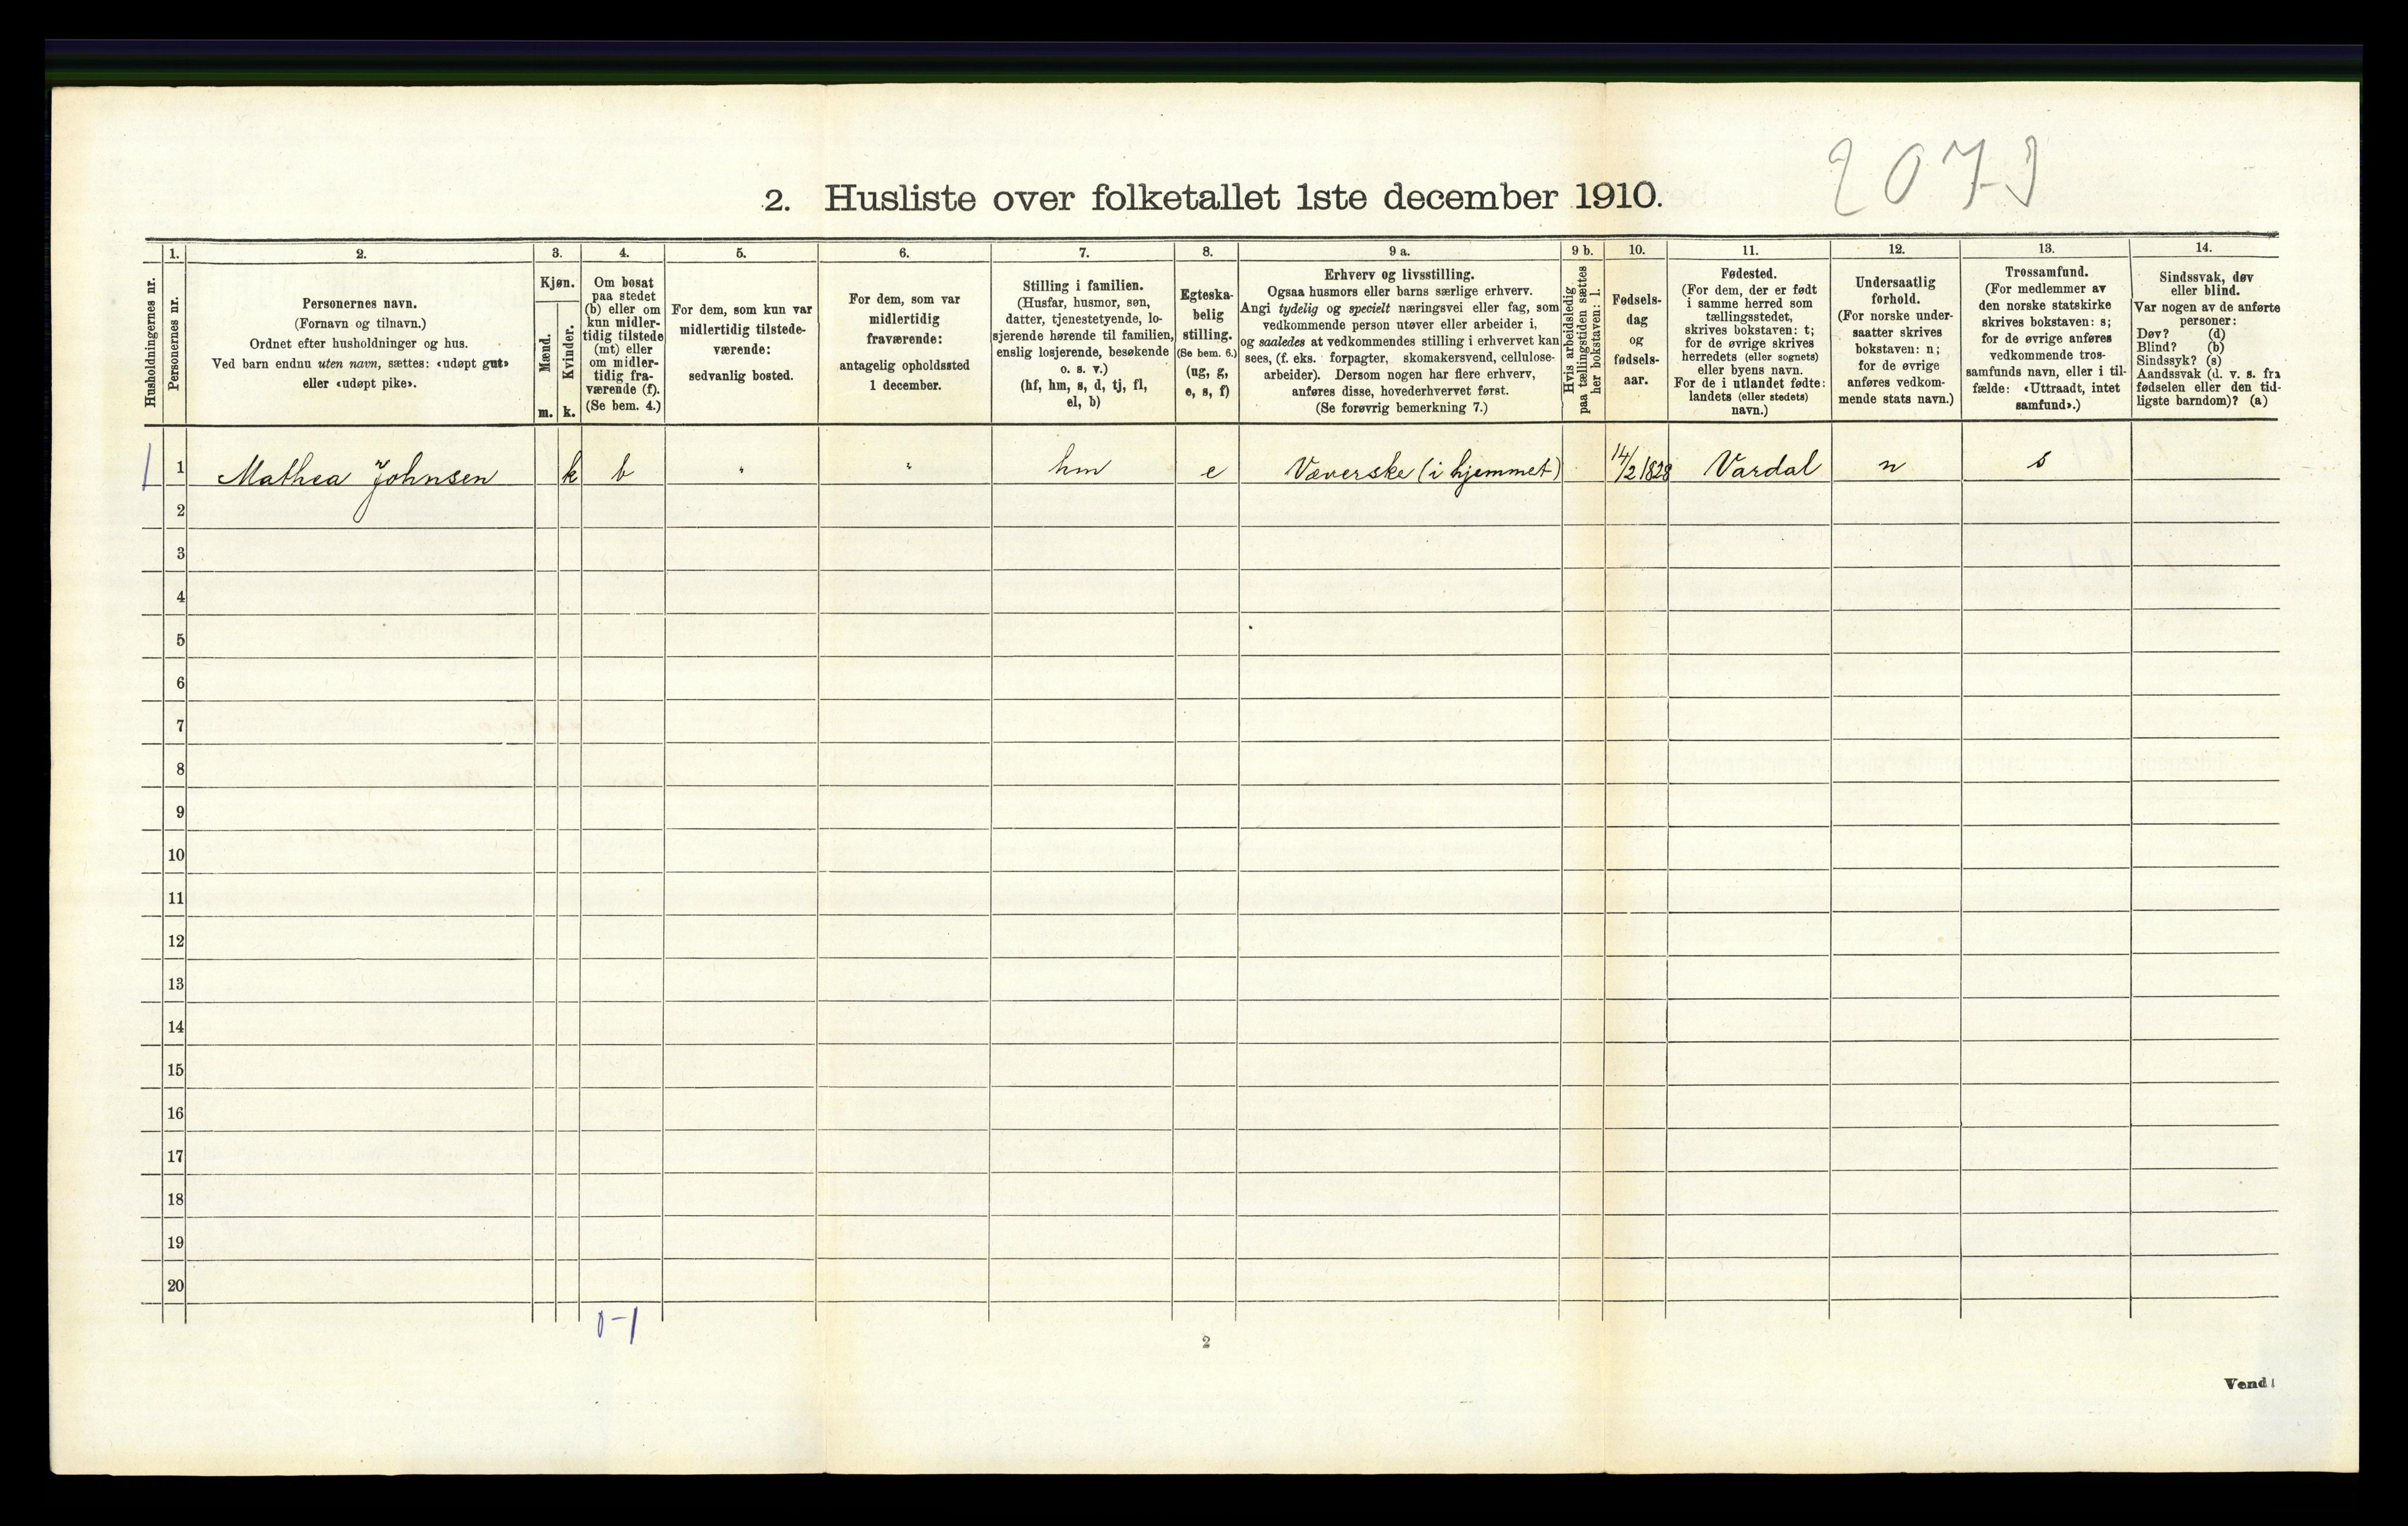 2073
2. Husliste over folketallet 1ste december 1910.
Husholdningernes nr.
1.
Personernes nr.
2.
Personernes navn.
(Fornavn og tilnavn.)
Ordnet efter husholdninger og hus.
Ved barn endnu uten navn, sættes: «udøpt gut»
eller «udøpt pike».
3.
Kjøn.
Mænd.
m.
Kvinder.
k.
4.
Om bosat
paa stedet
(b) eller om
kun midler-
tidig tilstede
(mt) eller
om midler-
tidig fra-
værende (f).
(Se bem. 4.)
5.
For dem, som kun var
midlertidig tilstede-
værende:
sedvanlig bosted.
6.
For dem, som var
midlertidig
fraværende:
antagelig opholdssted
1 december.
7.
Stilling i familien.
(Husfar, husmor, søn,
datter, tjenestetyende, lo-
sjerende hørende til familien,
enslig losjerende, besøkende
o. s. v.)
(hf, hm, s, d, tj, fl,
el, b)
8.
Egteska-
belig
stilling.
(Se bem. 6.)
(ug, g,
e, s, f)
9 a.
Erhverv og livsstilling.
Ogsaa husmors eller barns særlige erhverv.
Angi tydelig og specielt næringsvei eller fag, som
vedkommende person utøver eller arbeider i,
og saaledes at vedkommendes stilling i erhvervet kan
sees, (f. eks. forpagter, skomakersvend, cellulose-
arbeider). Dersom nogen har flere erhverv,
anføres disse, hovederhvervet først.
(Se forøvrig bemerkning 7.)
9 b.
Hvis arbeidsledig
paa tællingstiden sættes
her bokstaven: l.
10.
Fødsels-
dag
og
fødsels-
aar.
11.
Fødested.
(For dem, der er født
i samme herred som
tællingsstedet,
skrives bokstaven: t;
for de øvrige skrives
herredets (eller sognets)
eller byens navn.
For de i utlandet fødte:
landets (eller stedets)
navn.)
12.
Undersaatlig
forhold.
(For norske under-
saatter skrives
bokstaven: n;
for de øvrige
anføres vedkom-
mende stats navn.)
13.
Trossamfund.
(For medlemmer av
den norske statskirke
skrives bokstaven: s;
for de øvrige anføres
vedkommende tros-
samfunds navn, eller i til-
fælde: «Uttraadt, intet
samfund».)
14.
Sindssvak, døv
eller blind.
Var nogen av de anførte
personer:
Døv? (d)
Blind? (b)
Sindssyk? (s)
Aandssvak (d. v. s. fra
fødselen eller den tid-
ligste barndom)? (a)
1 1 Mathea Johnsen k b " " hm e Væverske (i hjemmet) 14/2 1828 Vardal n s
2
3
4
5
6
7
8
9
10
11
12
13
14
15
16
17
18
19
20
0-1
2
Vend!